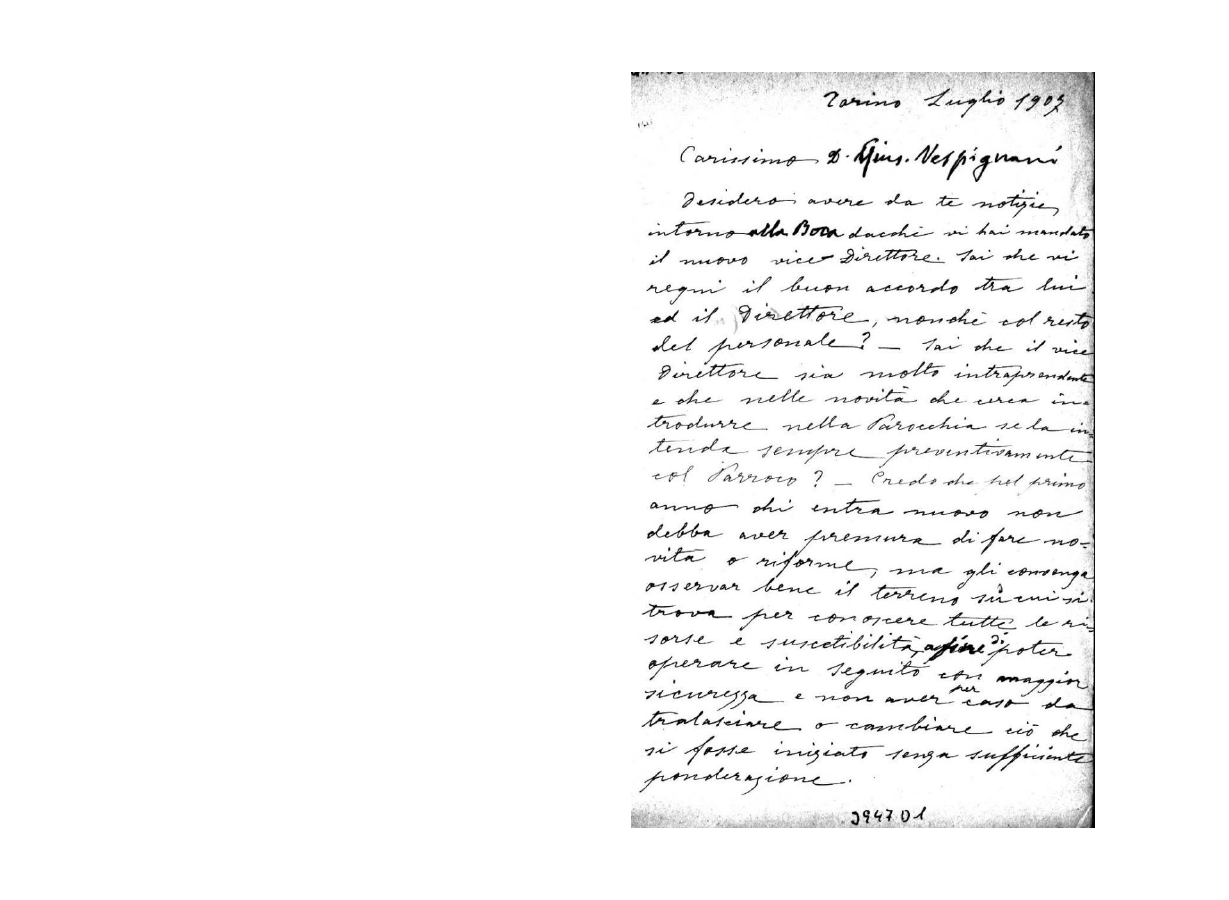 Torino Luglio 1907
Carissimo D. Gius. Vespignani
Desidero avere da te notizie
intorno alla Boca dacchè vi hai mandato
il nuovo vice Direttore. Sai che vi
regni il buon accordo tra lui
ed il Direttore, nonchè col resto
del personale? — Sai che il vice
Direttore sia molto intraprendente
e che nelle novità che cerca in=
trodurre nella Parocchia se la in=
tenda sempre preventivamente
col Parroco? — Credo che pel primo
anno chi entra nuovo non
debba aver premura di fare no=
vita o riforme, ma gli convenga
osservar bene il terreno sù cui si
trova per conoscere tutte le ri=
sorse e suscetibilità, afine di poter
operare in seguito con maggior
sicurezza e non aver per caso da
tralasciare o cambiare ciò che
si fosse iniziato senza sufficiente
ponderazione.
3947 D1